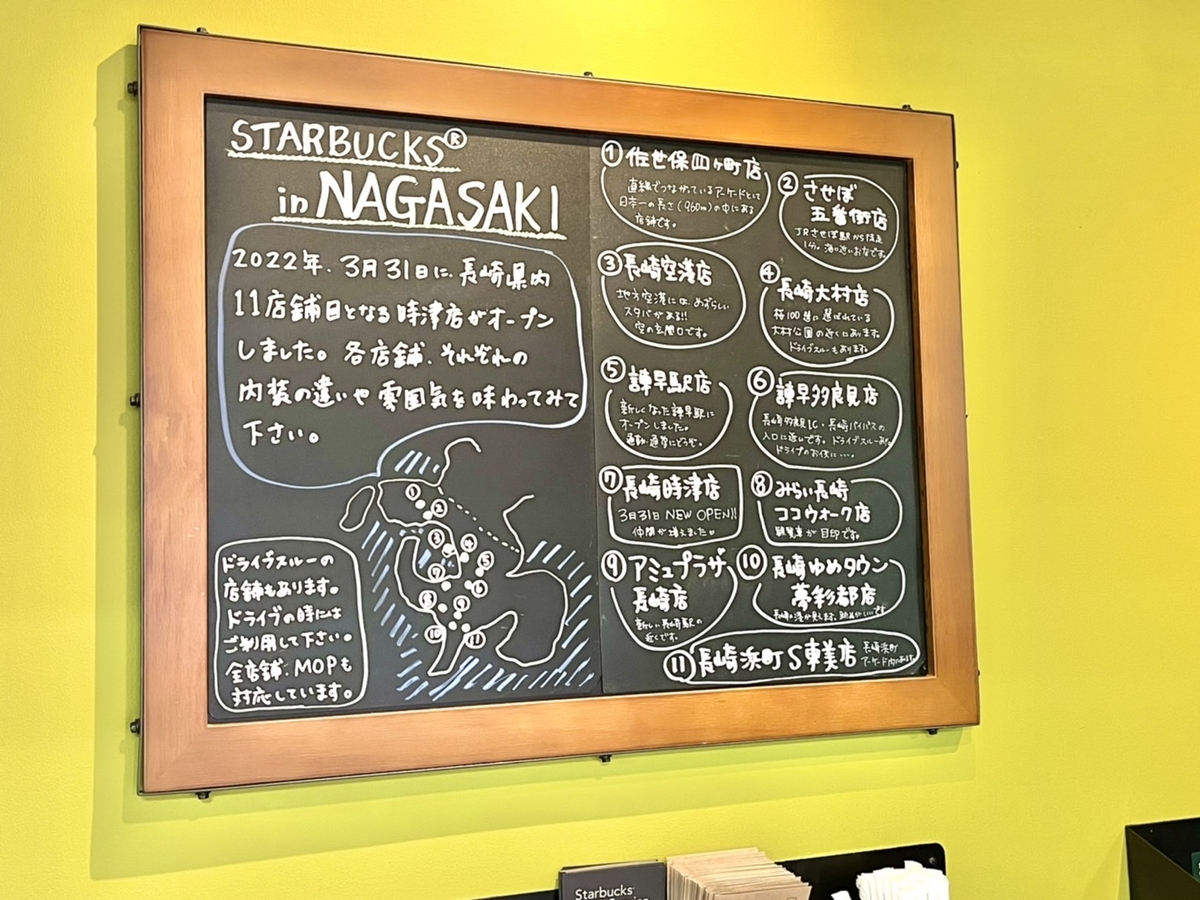 STARBUCKS®
in NAGASAKI
2022年、3月31日に、長崎県内
11店舗目となる時津店がオープン
しました。各店舗、それぞれの
内装の違いや雰囲気を味わってみて
下さい。
①
②
③
④
⑤
⑥
⑦
⑧
⑨
⑩
⑪
ドライブスルーの
店舗もあります。
ドライブの時には
ご利用して下さい。
全店舗、MOPも
対応しています。
① 佐世保四ヶ町店
直線でつながっているアーケードとして
日本一の長さ(960m)の中にある
店舗です。
② させぼ
五番街店
JRさせぼ駅から徒歩
1分。海に近いお店です。
③ 長崎空港店
地方空港には、めずらしい
スタバがある!!
空の玄関口です。
④ 長崎大村店
桜100選に選ばれている
大村公園の近くにあります。
ドライブスルーもあります。
⑤ 諫早駅店
新しくなった諫早駅に
オープンしました。
通勤・通学にどうぞ。
⑥ 諫早多良見店
長崎多良見IC・長崎バイパスの
入口に近いです。ドライブスルーあり。
ドライブのお供に…。
⑦ 長崎時津店
3月31日 NEW OPEN!!
仲間が増えました
⑧ みらい長崎
ココウォーク店
観覧車が目印です。
⑨ アミュプラザ
長崎店
新しい長崎駅の
近くです。
⑩ 長崎ゆめタウン
夢彩都店
長崎の港が見えます。
⑪ 長崎浜町S東美店
長崎浜町
アーケード内にあります
Starbucks